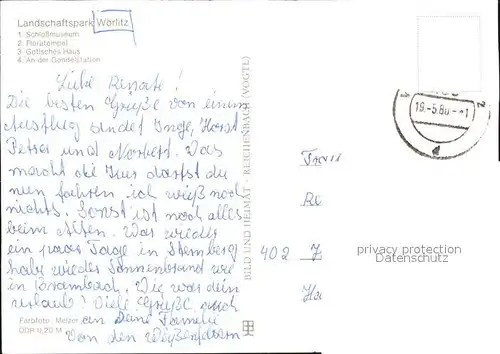 Landschaftspark Wörlitz
1. Schloßmuseum
2. Floratempel
3. Gotisches Haus
4. An der Gondelstation
Liebe Renate!
Die besten Grüße von einem
Ausflug sendet Inge, Horst
Petra und Norbert. Was
macht die Kur darfst du
nun fahren ich weiß noch
nichts. Sonst ist noch alles
beim Alten. War wieder
ein paar Tage in Sternberg
habe wieder Sonnenbrand wie
in Brambach. Wie war dein
Urlaub? Viele Grüße auch
an Deine Familie
Von den Weißenfelsern
Farbfoto: Melzer
DDR 0,20 M
BILD UND HEIMAT · REICHENBACH (VOGTL)
19.-5.80.--1
a
Frau
Re
402
Ha
privacy protection
Datenschutz